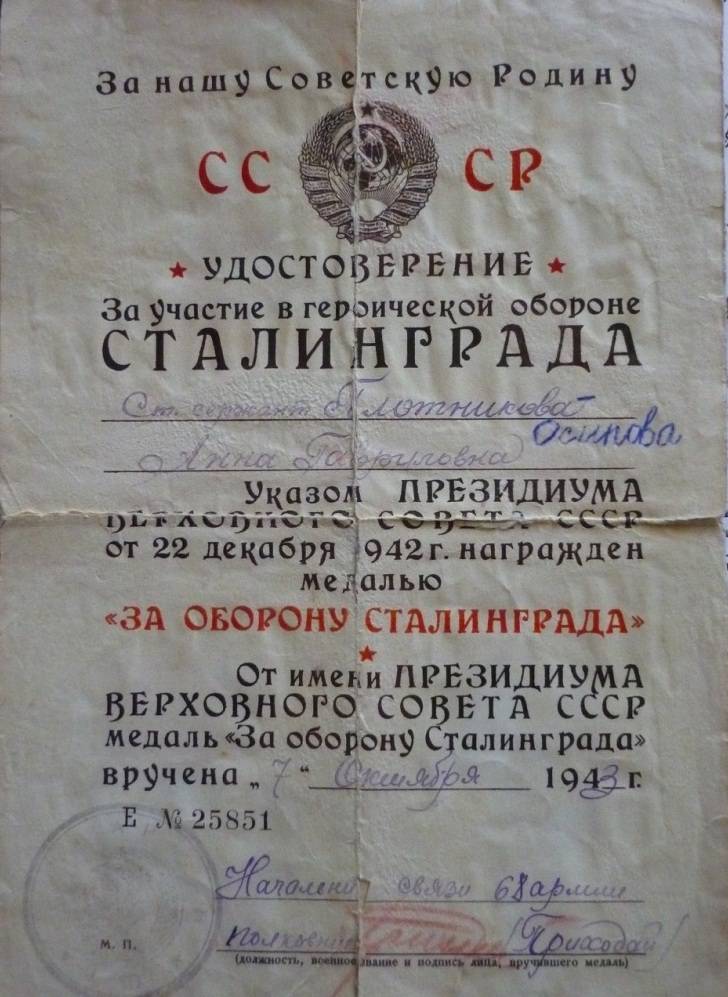 За нашу Советскую Родину
СССР
УДОСТОВЕРЕНИЕ
За участие в героической обороне
СТАЛИНГРАДА
Ст. сержант Плотникова-
Осипова
Анна Гавриловна
Указом ПРЕЗИДИУМА
ВЕРХОВНОГО СОВЕТА СССР
от 22 декабря 1942 г. награжден
медалью
«ЗА ОБОРОНУ СТАЛИНГРАДА»
От имени ПРЕЗИДИУМА
ВЕРХОВНОГО СОВЕТА СССР
медаль «За оборону Сталинграда»
вручена „7" Октября 1943 г.
Е № 25851
Начальник связи 68 армии
полковник (Приходай)
М. П.
(должность, военное звание и подпись лица, вручившего медаль)